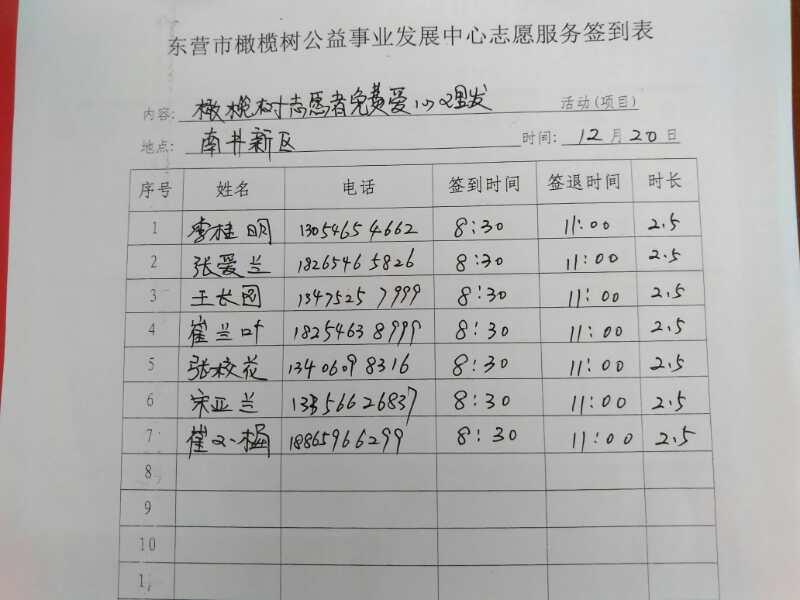 东营市橄榄树公益事业发展中心志愿服务签到表
内容: 橄榄树志愿者免费爱心理发 活动(项目)
地点: 南井新区 时间: 12月20日
序号 姓名 电话 签到时间 签退时间 时长
1 李桂明 13054654662 8:30 11:00 2.5
2 张爱兰 18265465826 8:30 11:00 2.5
3 王长园 13475257999 8:30 11:00 2.5
4 崔兰叶 18254638999 8:30 11:00 2.5
5 张校花 13406098316 8:30 11:00 2.5
6 宋亚兰 13356626837 8:30 11:00 2.5
7 崔 梅 18865966299 8:30 11:00 2.5
8
9
10